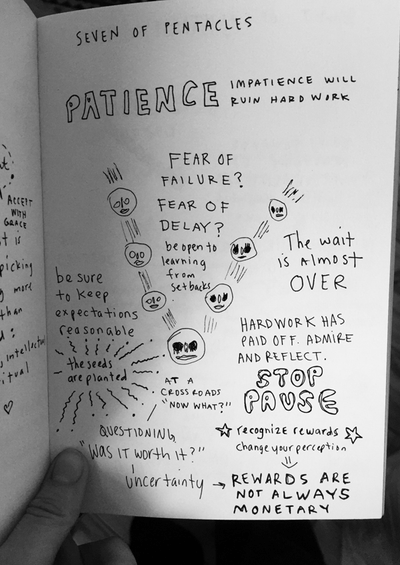 SEVEN OF PENTACLES
PATIENCE
IMPATIENCE WILL
RUIN HARD WORK
FEAR OF
FAILURE?
FEAR OF
DELAY?
be open to
learning
from
setbacks
The wait
is almost
OVER
be sure
to keep
expectations
reasonable
the seeds
are planted
HARDWORK HAS
PAID OFF. ADMIRE
AND REFLECT.
STOP
PAUSE
AT A
CROSS ROADS
"NOW WHAT?"
recognize rewards
change your perception
QUESTIONING
"WAS IT WORTH IT?"
uncertainty → REWARDS ARE
NOT ALWAYS
MONETARY
ACCEPT
WITH
GRACE
t is
picking
more
than